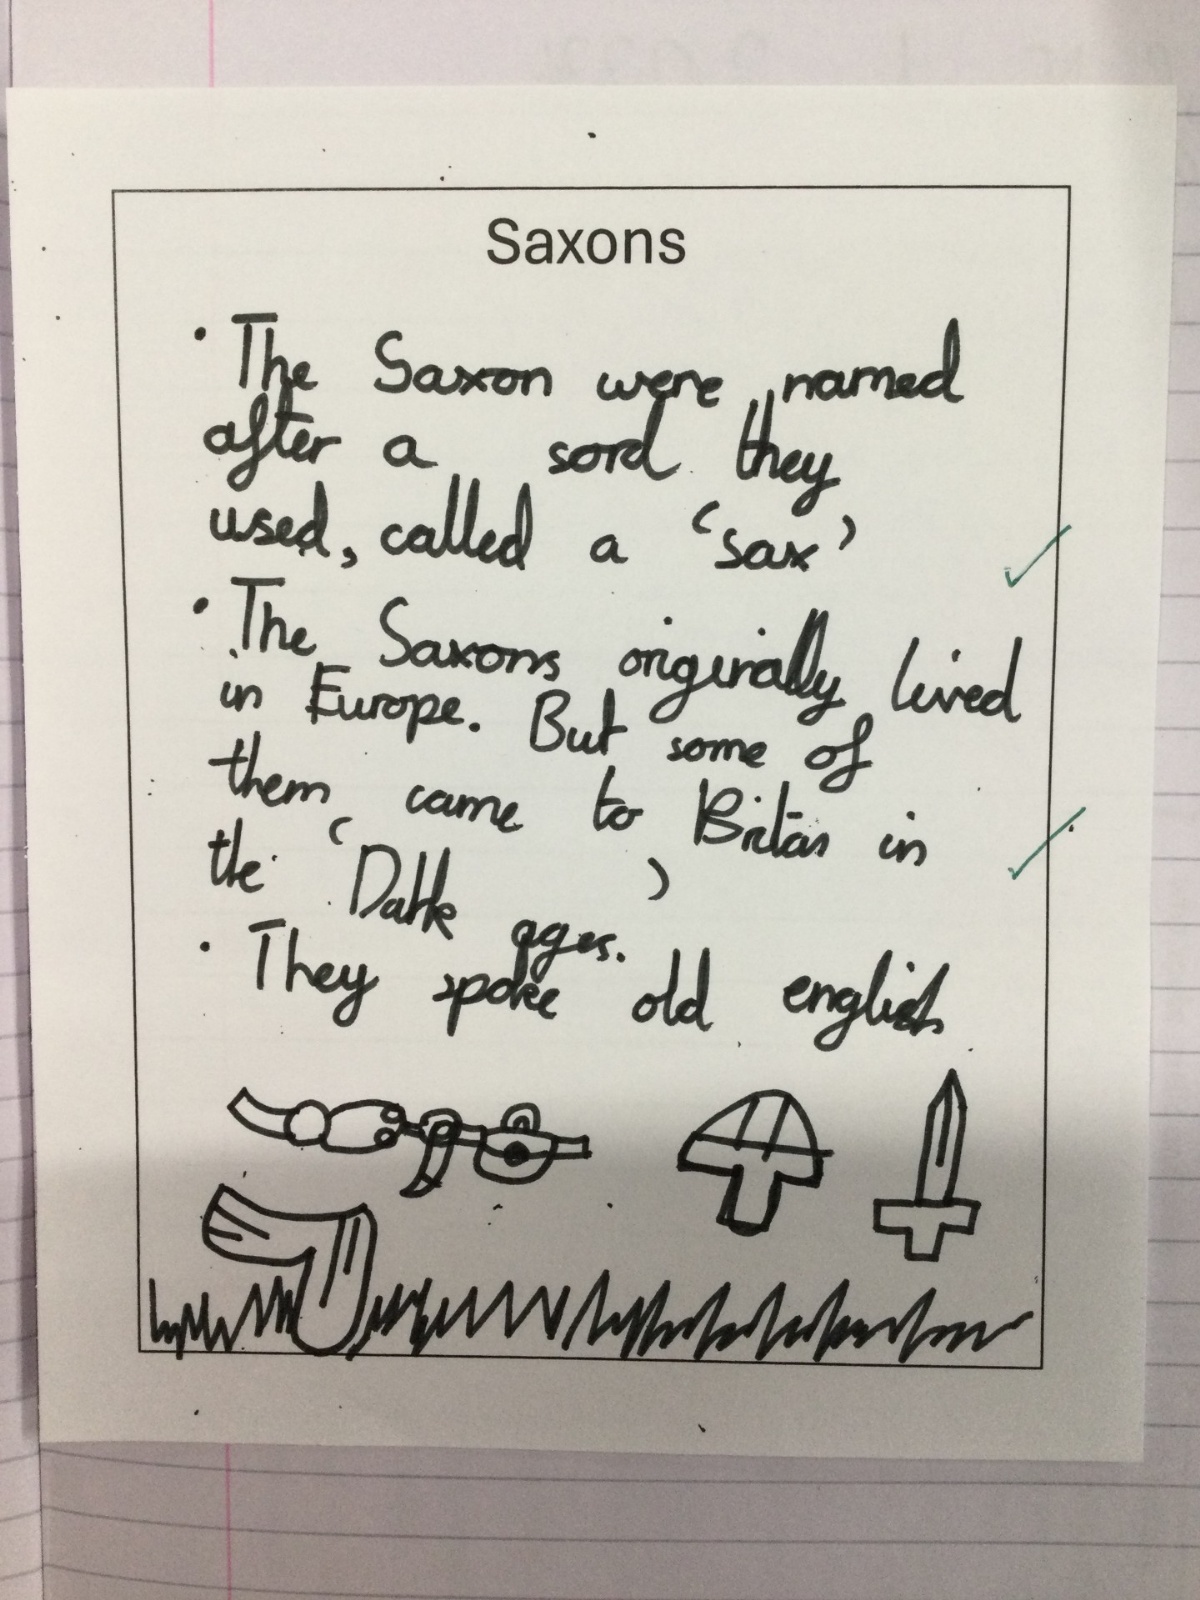 Saxons
• The Saxon were named
after a sord they
used, called a ‘sax’
• The Saxons originally lived
in Europe. But some of
them came to Britan in
the ‘Dark ages.’
• They spoke old english